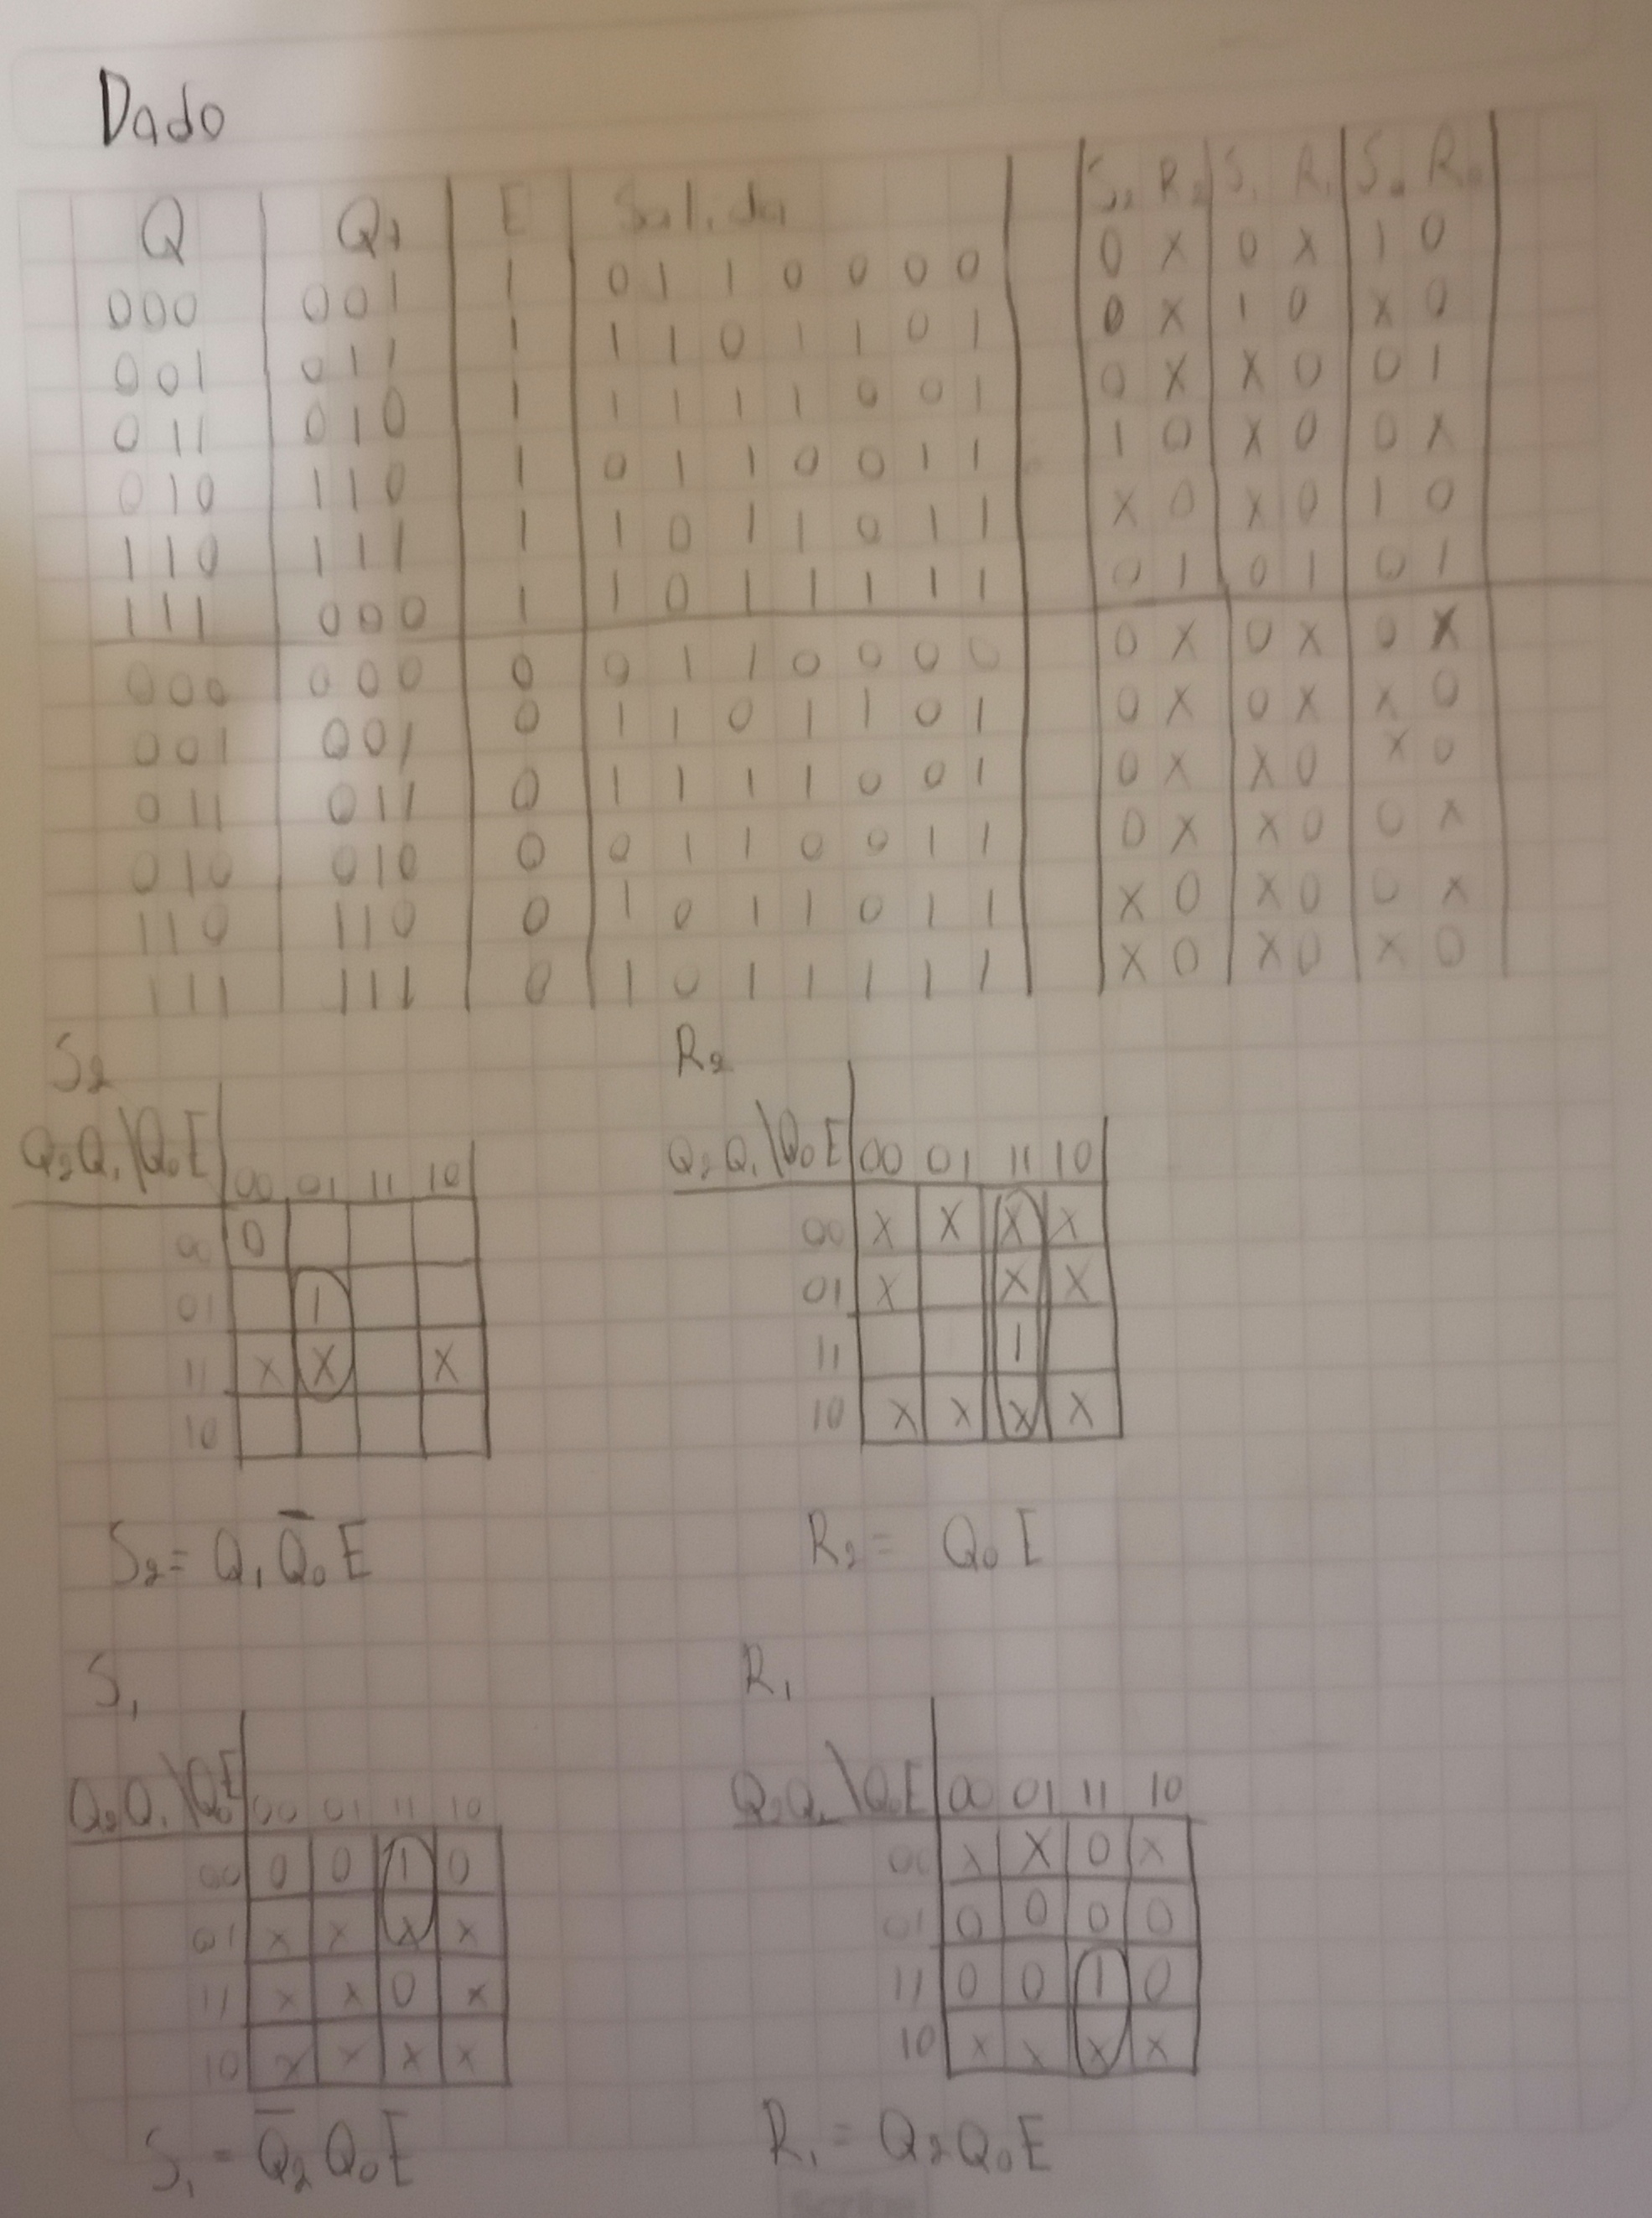 Dado
Q Q+ E Salida S2 R2 S1 R1 S0 R0
000 001 1 0 1 1 0 0 0 0 0 X 0 X 1 0
001 011 1 1 1 0 1 1 0 1 0 X 1 0 X 0
011 010 1 1 1 1 1 0 0 1 0 X X 0 0 1
010 110 1 0 1 1 0 0 1 1 1 0 X 0 0 X
110 111 1 1 0 1 1 0 1 1 X 0 X 0 1 0
111 000 1 1 0 1 1 1 1 1 0 1 0 1 0 1
000 000 0 0 1 1 0 0 0 0 0 X 0 X 0 X
001 001 0 1 1 0 1 1 0 1 0 X 0 X X 0
011 011 0 1 1 1 1 0 0 1 0 X X 0 X 0
010 010 0 0 1 1 0 0 1 1 0 X X 0 0 X
110 110 0 1 0 1 1 0 1 1 X 0 X 0 0 X
111 111 0 1 0 1 1 1 1 1 X 0 X 0 X 0
S2
Q2Q1\Q0E 00 01 11 10
00 0
01 1
11 X X X
10
S2 = Q1 Q̄0 E
R2
Q2Q1\Q0E 00 01 11 10
00 X X X X
01 X X X
11 1
10 X X X X
R2 = Q0 E
S1
Q2Q1\Q0E 00 01 11 10
00 0 0 1 0
01 X X X X
11 X X 0 X
10 X X X X
S1 = Q̄2 Q0 E
R1
Q2Q1\Q0E 00 01 11 10
00 X X 0 X
01 0 0 0 0
11 0 0 1 0
10 X X X X
R1 = Q2 Q0 E